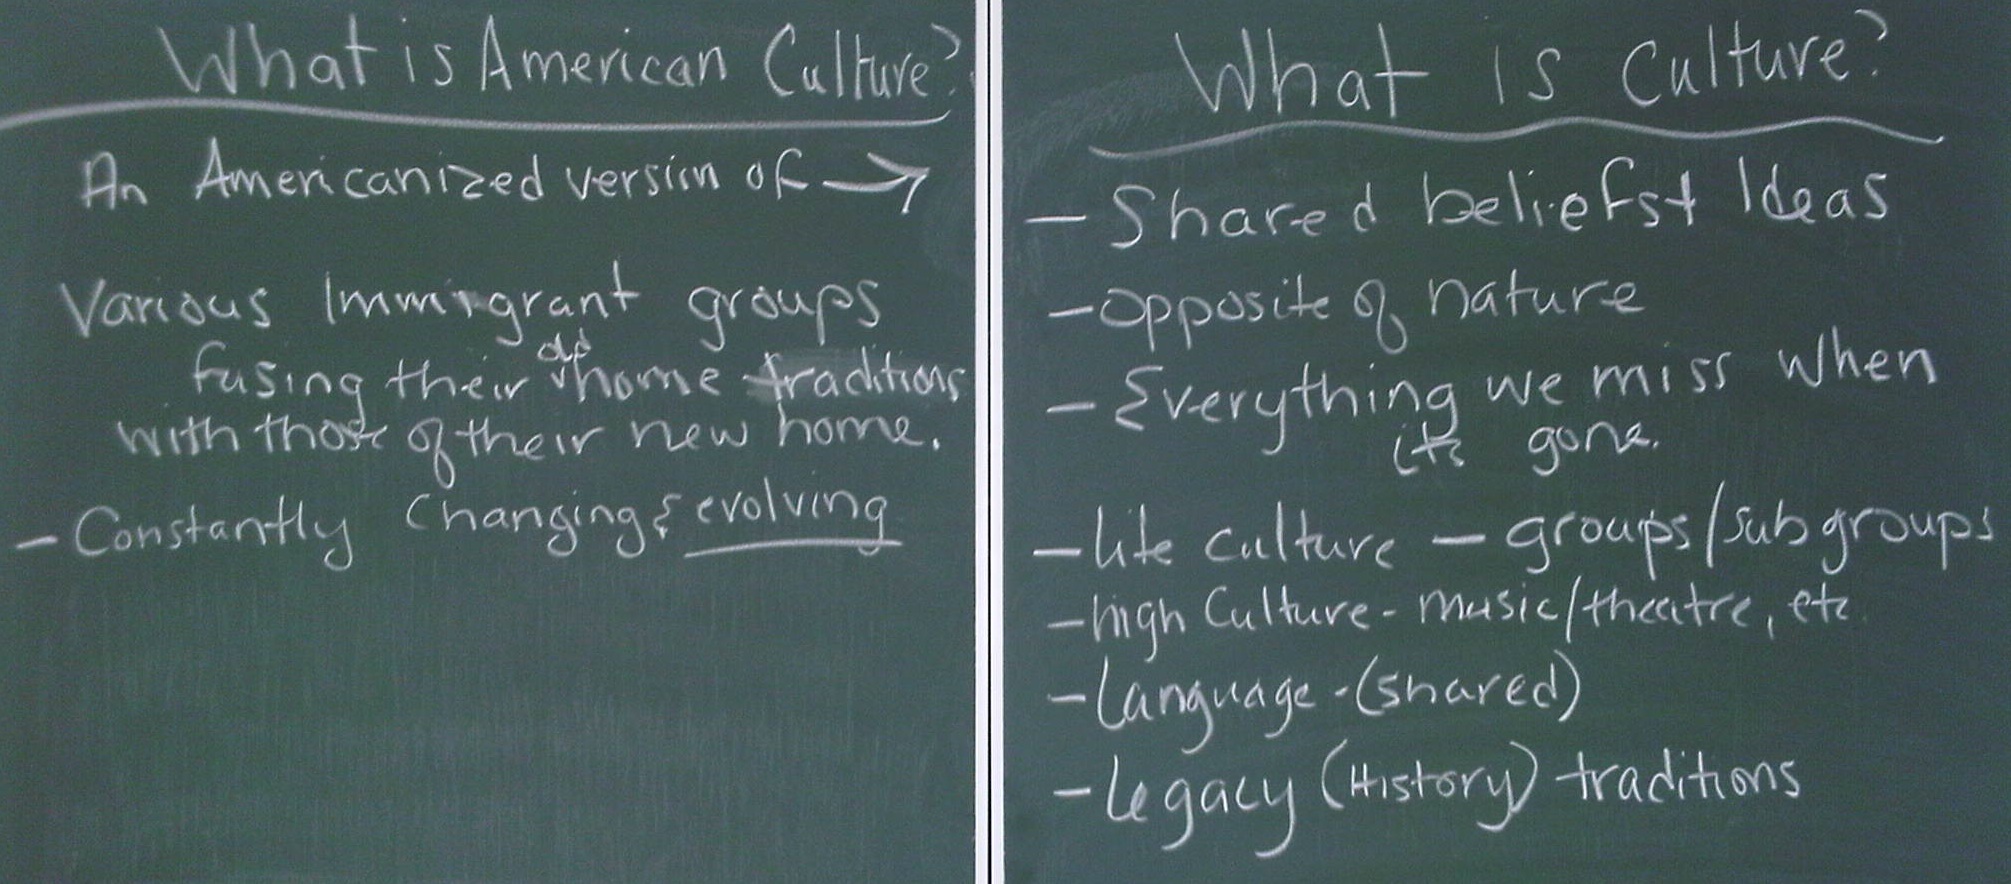 What is American Culture?
An Americanized version of →
Various Immigrant groups
old
fusing their home traditions
with those of their new home.
- Constantly Changing & evolving
What is Culture?
- Shared beliefs + Ideas
- opposite of nature
- Everything we miss when
its gone.
- lite culture - groups/subgroups
- high Culture - music/theatre, etc.
- Language - (shared)
- Legacy (History) traditions